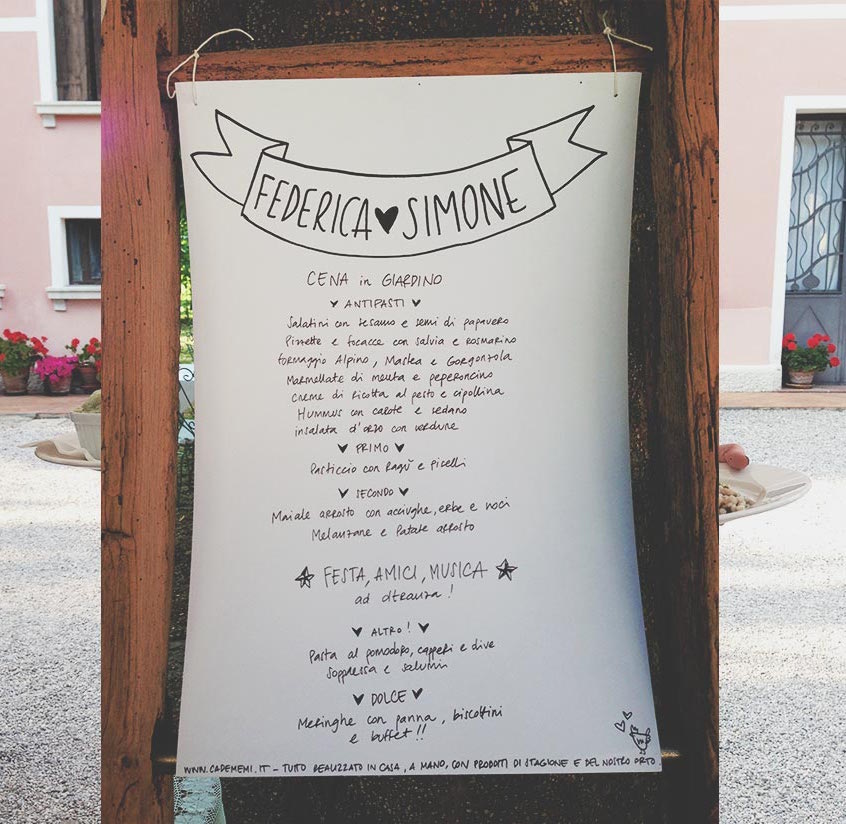 FEDERICA ♥ SIMONE
CENA in GIARDINO
♥ ANTIPASTI ♥
Salatini con sesamo e semi di papavero
Pizzette e focacce con salvia e rosmarino
formaggio Alpino, Mastea e Gorgonzola
Marmellate di menta e peperoncino
creme di ricotta al pesto e cipollina
Hummus con carote e sedano
insalata d'orzo con verdure
♥ PRIMO ♥
Pasticcio con Ragù e piselli
♥ SECONDO ♥
Maiale arrosto con acciughe, erbe e noci
Melanzane e Patate arrosto
★ FESTA, AMICI, MUSICA ★
ad oltranza!
♥ ALTRO! ♥
Pasta al pomodoro, capperi e olive
soppressa e salumi
♥ DOLCE ♥
Meringhe con panna, biscottini
e buffet!!
WWW.CADEMEMI.IT - TUTTO REALIZZATO IN CASA, A MANO, CON PRODOTTI DI STAGIONE E DEL NOSTRO ORTO.